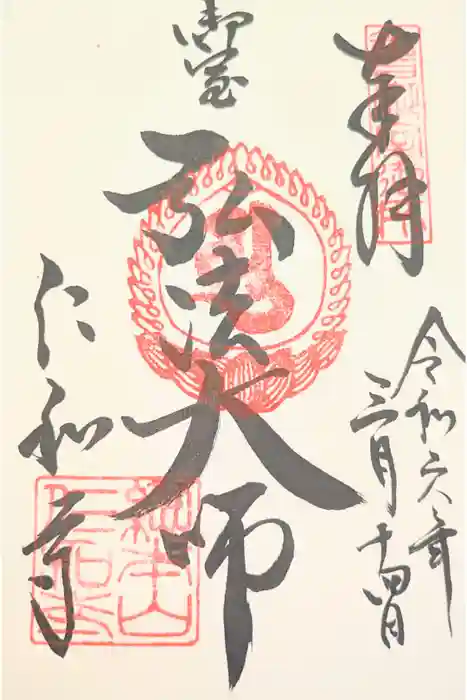 奉拝
令和六年
三月十四日
御室
弘法大師
仁和寺